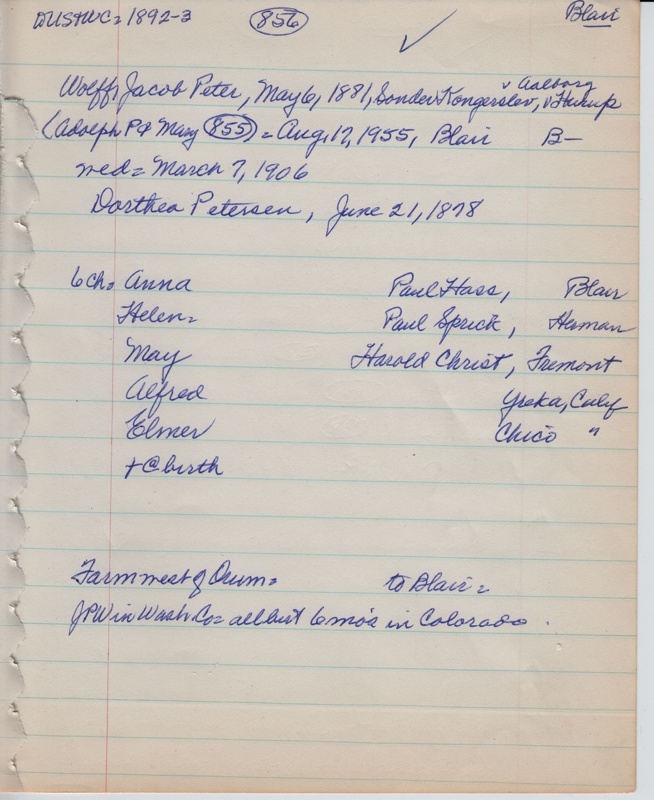 DUS+WC = 1892-3 856 Blair
v Aalborg
Wolff, Jacob Peter, May 6, 1881, Sonder Kongerslev, v Hurup
(Adolph P & Mary 855) = Aug. 17, 1955, Blair B-
wed = March 7, 1906
Dorthea Petersen, June 21, 1878
6 ch. Anna Paul Hass, Blair
Helen = Paul Sprick, Herman
May Harold Christ, Fremont
Alfred Yreka, Calif
Elmer Chico "
+ @ birth
Farm west of Orum = to Blair =
JPW in Wash Co = all but 6 mo's in Colorado.